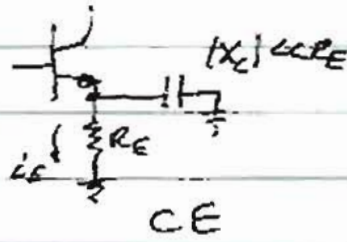 |Xc| << RE
RE
iE
CE